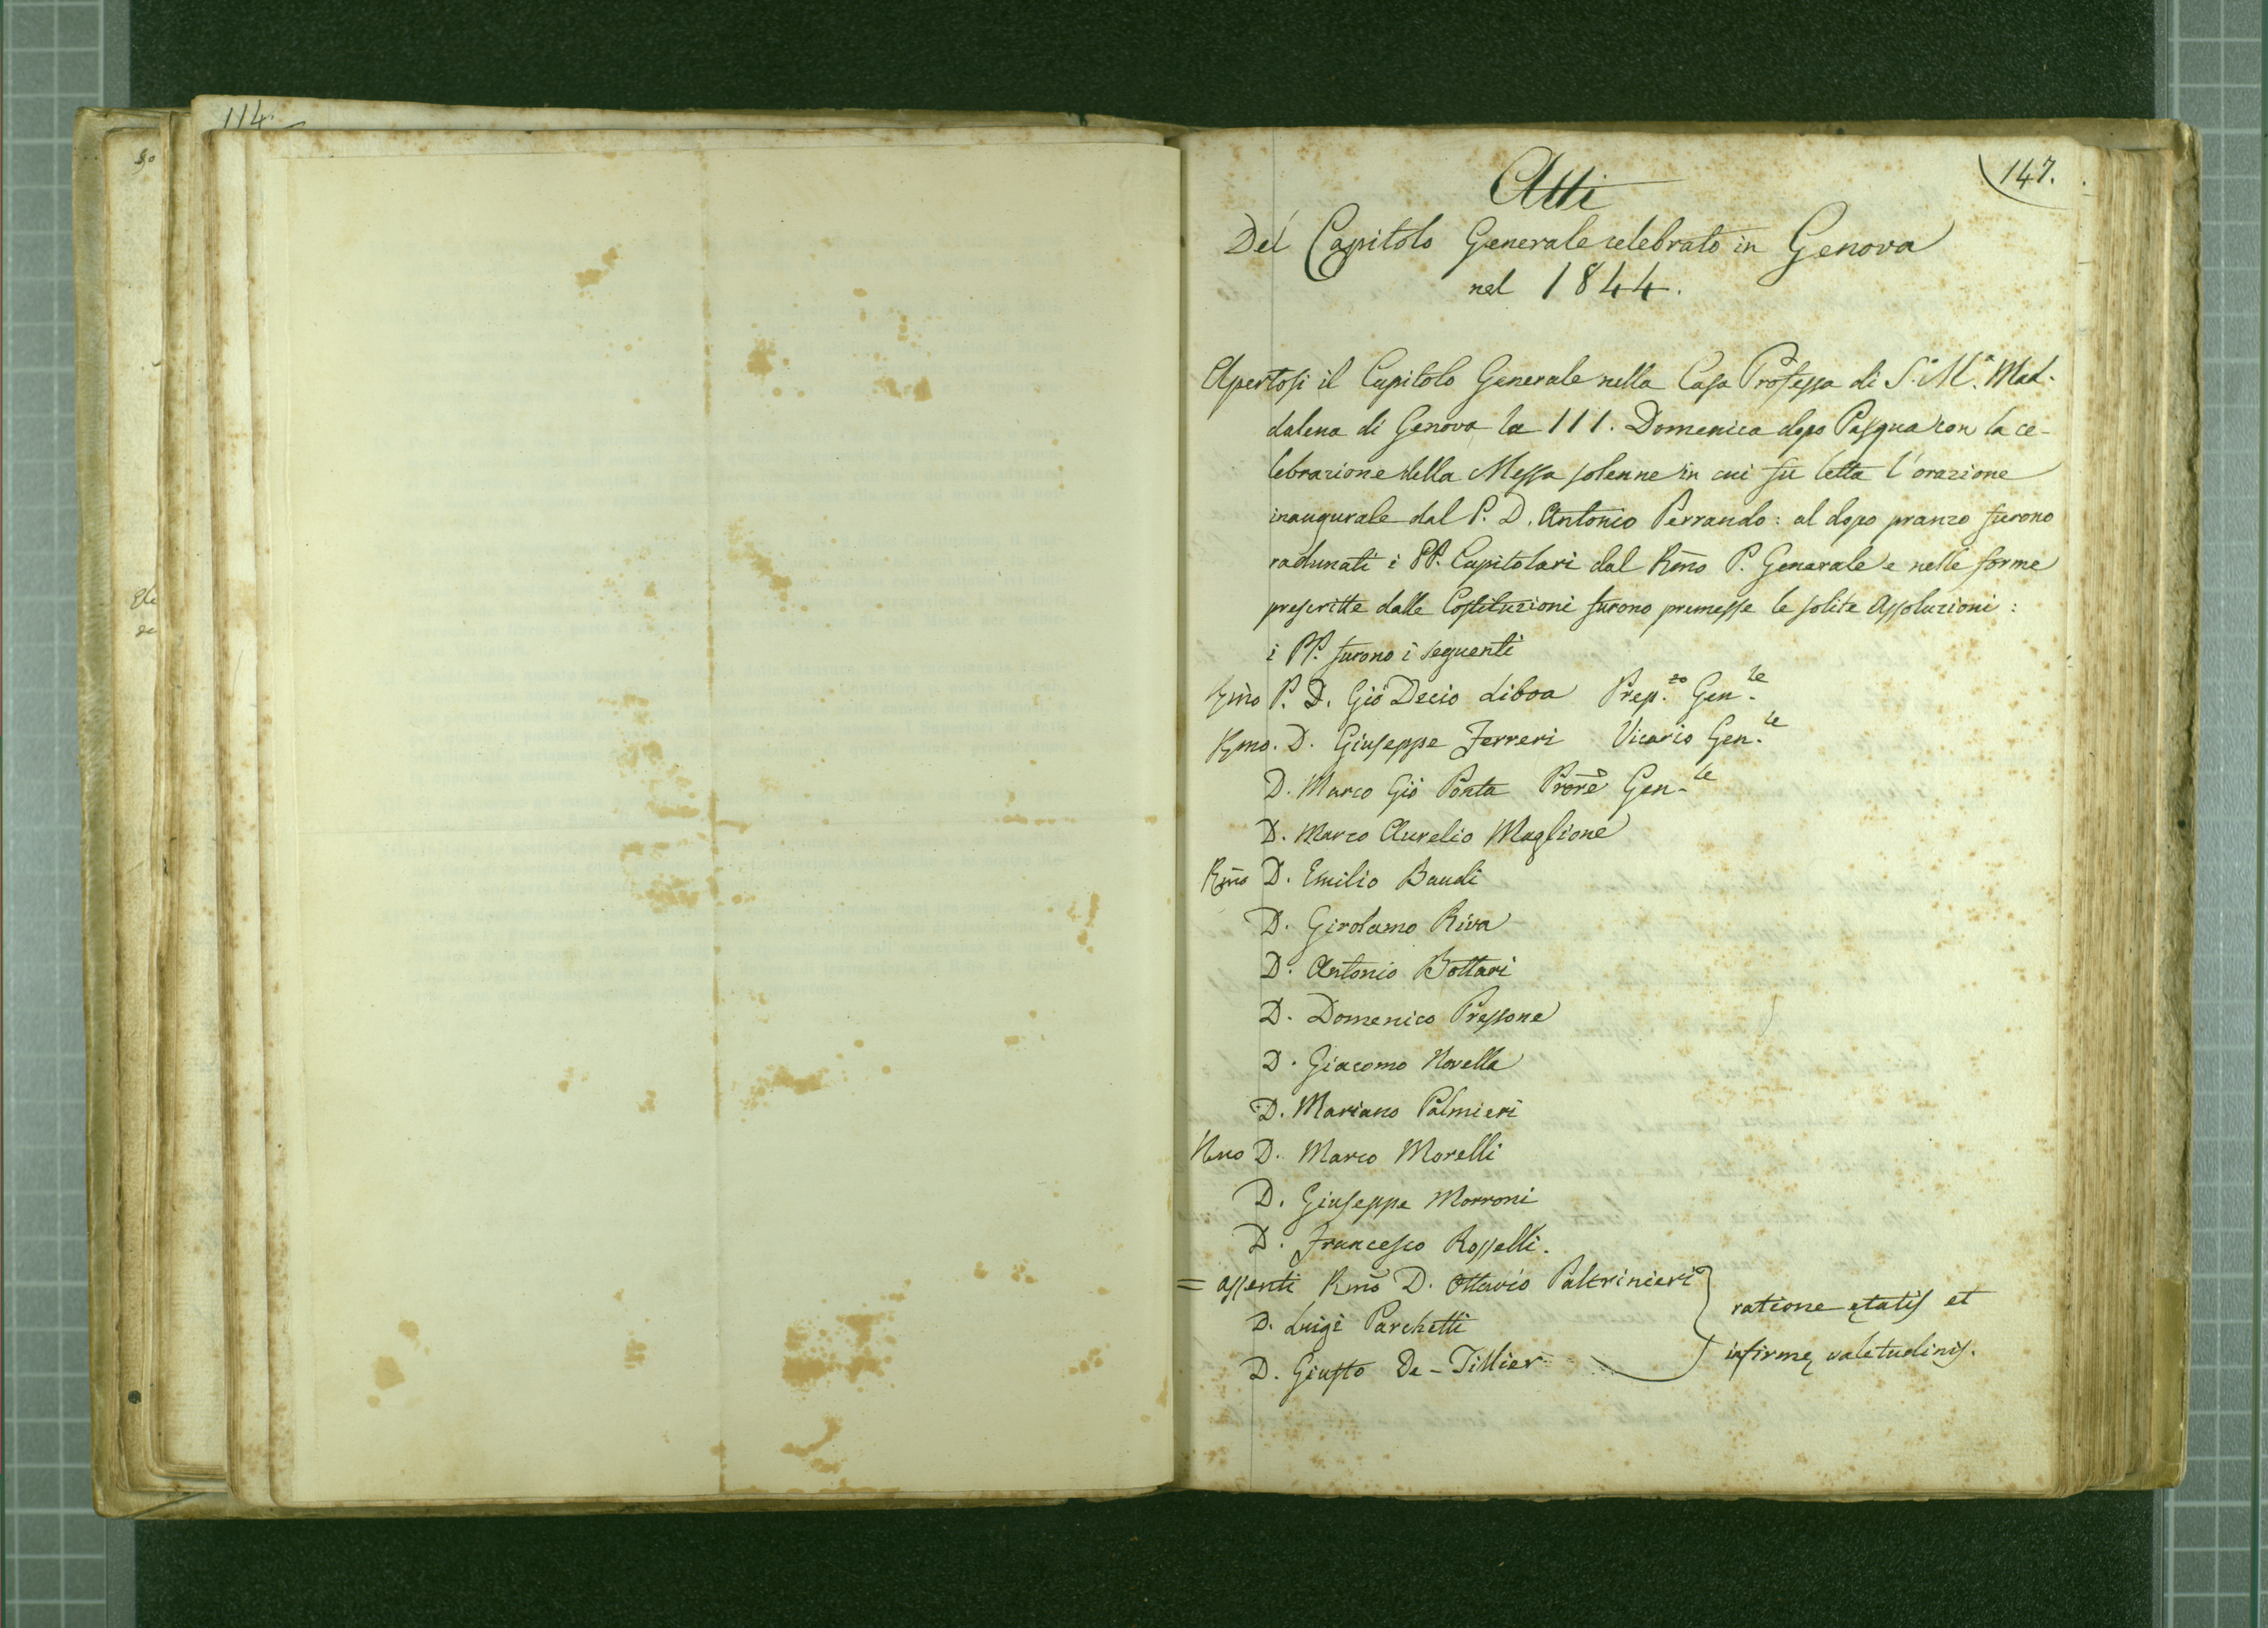 114.
147.
Atti
Del Capitolo Generale celebrato in Genova
nel 1844.
Apertosi il Capitolo Generale nella Casa Professa di S.ª M.ª Mad-
dalena di Genova la III. Domenica dopo Pasqua con la ce-
lebrazione della Messa solenne in cui fu letta l'orazione
inaugurale dal P. D. Antonio Perrando: al dopo pranzo furono
radunati i PP. Capitolari dal Rm̃o P. Generale e nelle forme
prescritte dalle Costituzioni furono premesse le solite assoluzioni:
i PP. furono i seguenti
Rm̃o P. D. Giõ Decio Liboa Prep.to Gen.le
Rmo. D. Giuseppe Ferreri Vicario Gen.le
D. Marco Giõ Ponta Prore Gen.le
D. Marco Aurelio Maglione
Rm̃o D. Emilio Baudi
D. Girolamo Riva
D. Antonio Bottari
D. Domenico Pressone
D. Giacomo Novella
D. Mariano Palmieri
Rmo D. Marco Morelli
D. Giuseppe Morroni
D. Francesco Rosselli.
= assenti Rm̃o D. Ottavio Paltrinieri
D. Luigi Parchetti
D. Giusto De-Tillier
ratione ętatis et
infirmę valetudinis.